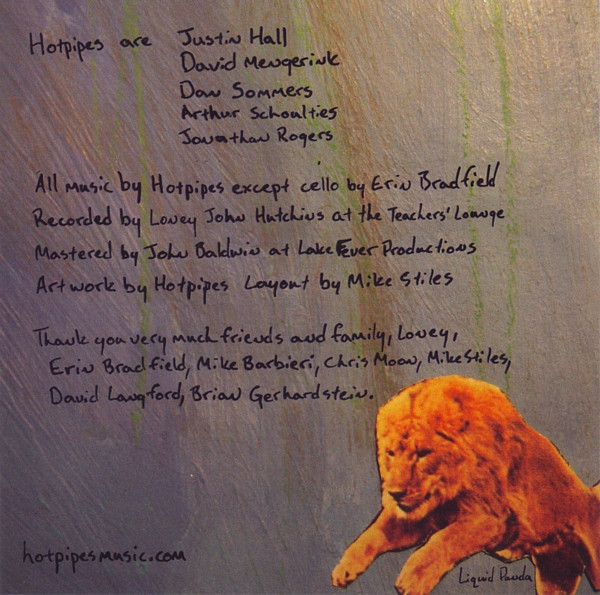 Hotpipes are Justin Hall
David Mengerink
Dan Sommers
Arthur Schoulties
Jonathan Rogers
All music by Hotpipes except cello by Erin Bradfield
Recorded by Loney John Hutchins at the Teachers' Lounge
Mastered by John Baldwin at Lake Fever Productions
Artwork by Hotpipes Layout by Mike Stiles
Thank you very much friends and family, Loney,
Erin Bradfield, Mike Barbieri, Chris Moon, Mike Stiles,
David Langford, Brian Gerhardstein.
hotpipesmusic.com
Liquid Panda